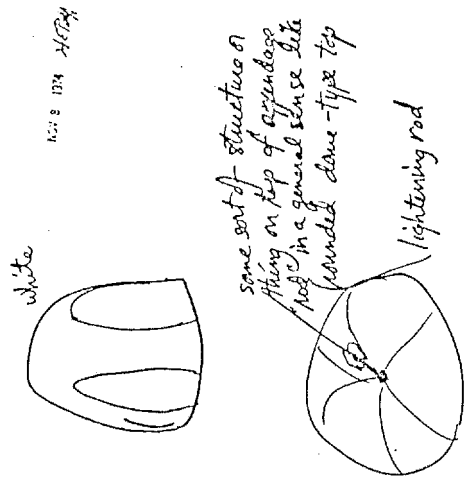 NOV 8 1974
white
some sort of structure or
thing on top of appendage
rod in a general sense like
rounded dome-type top
lightening rod